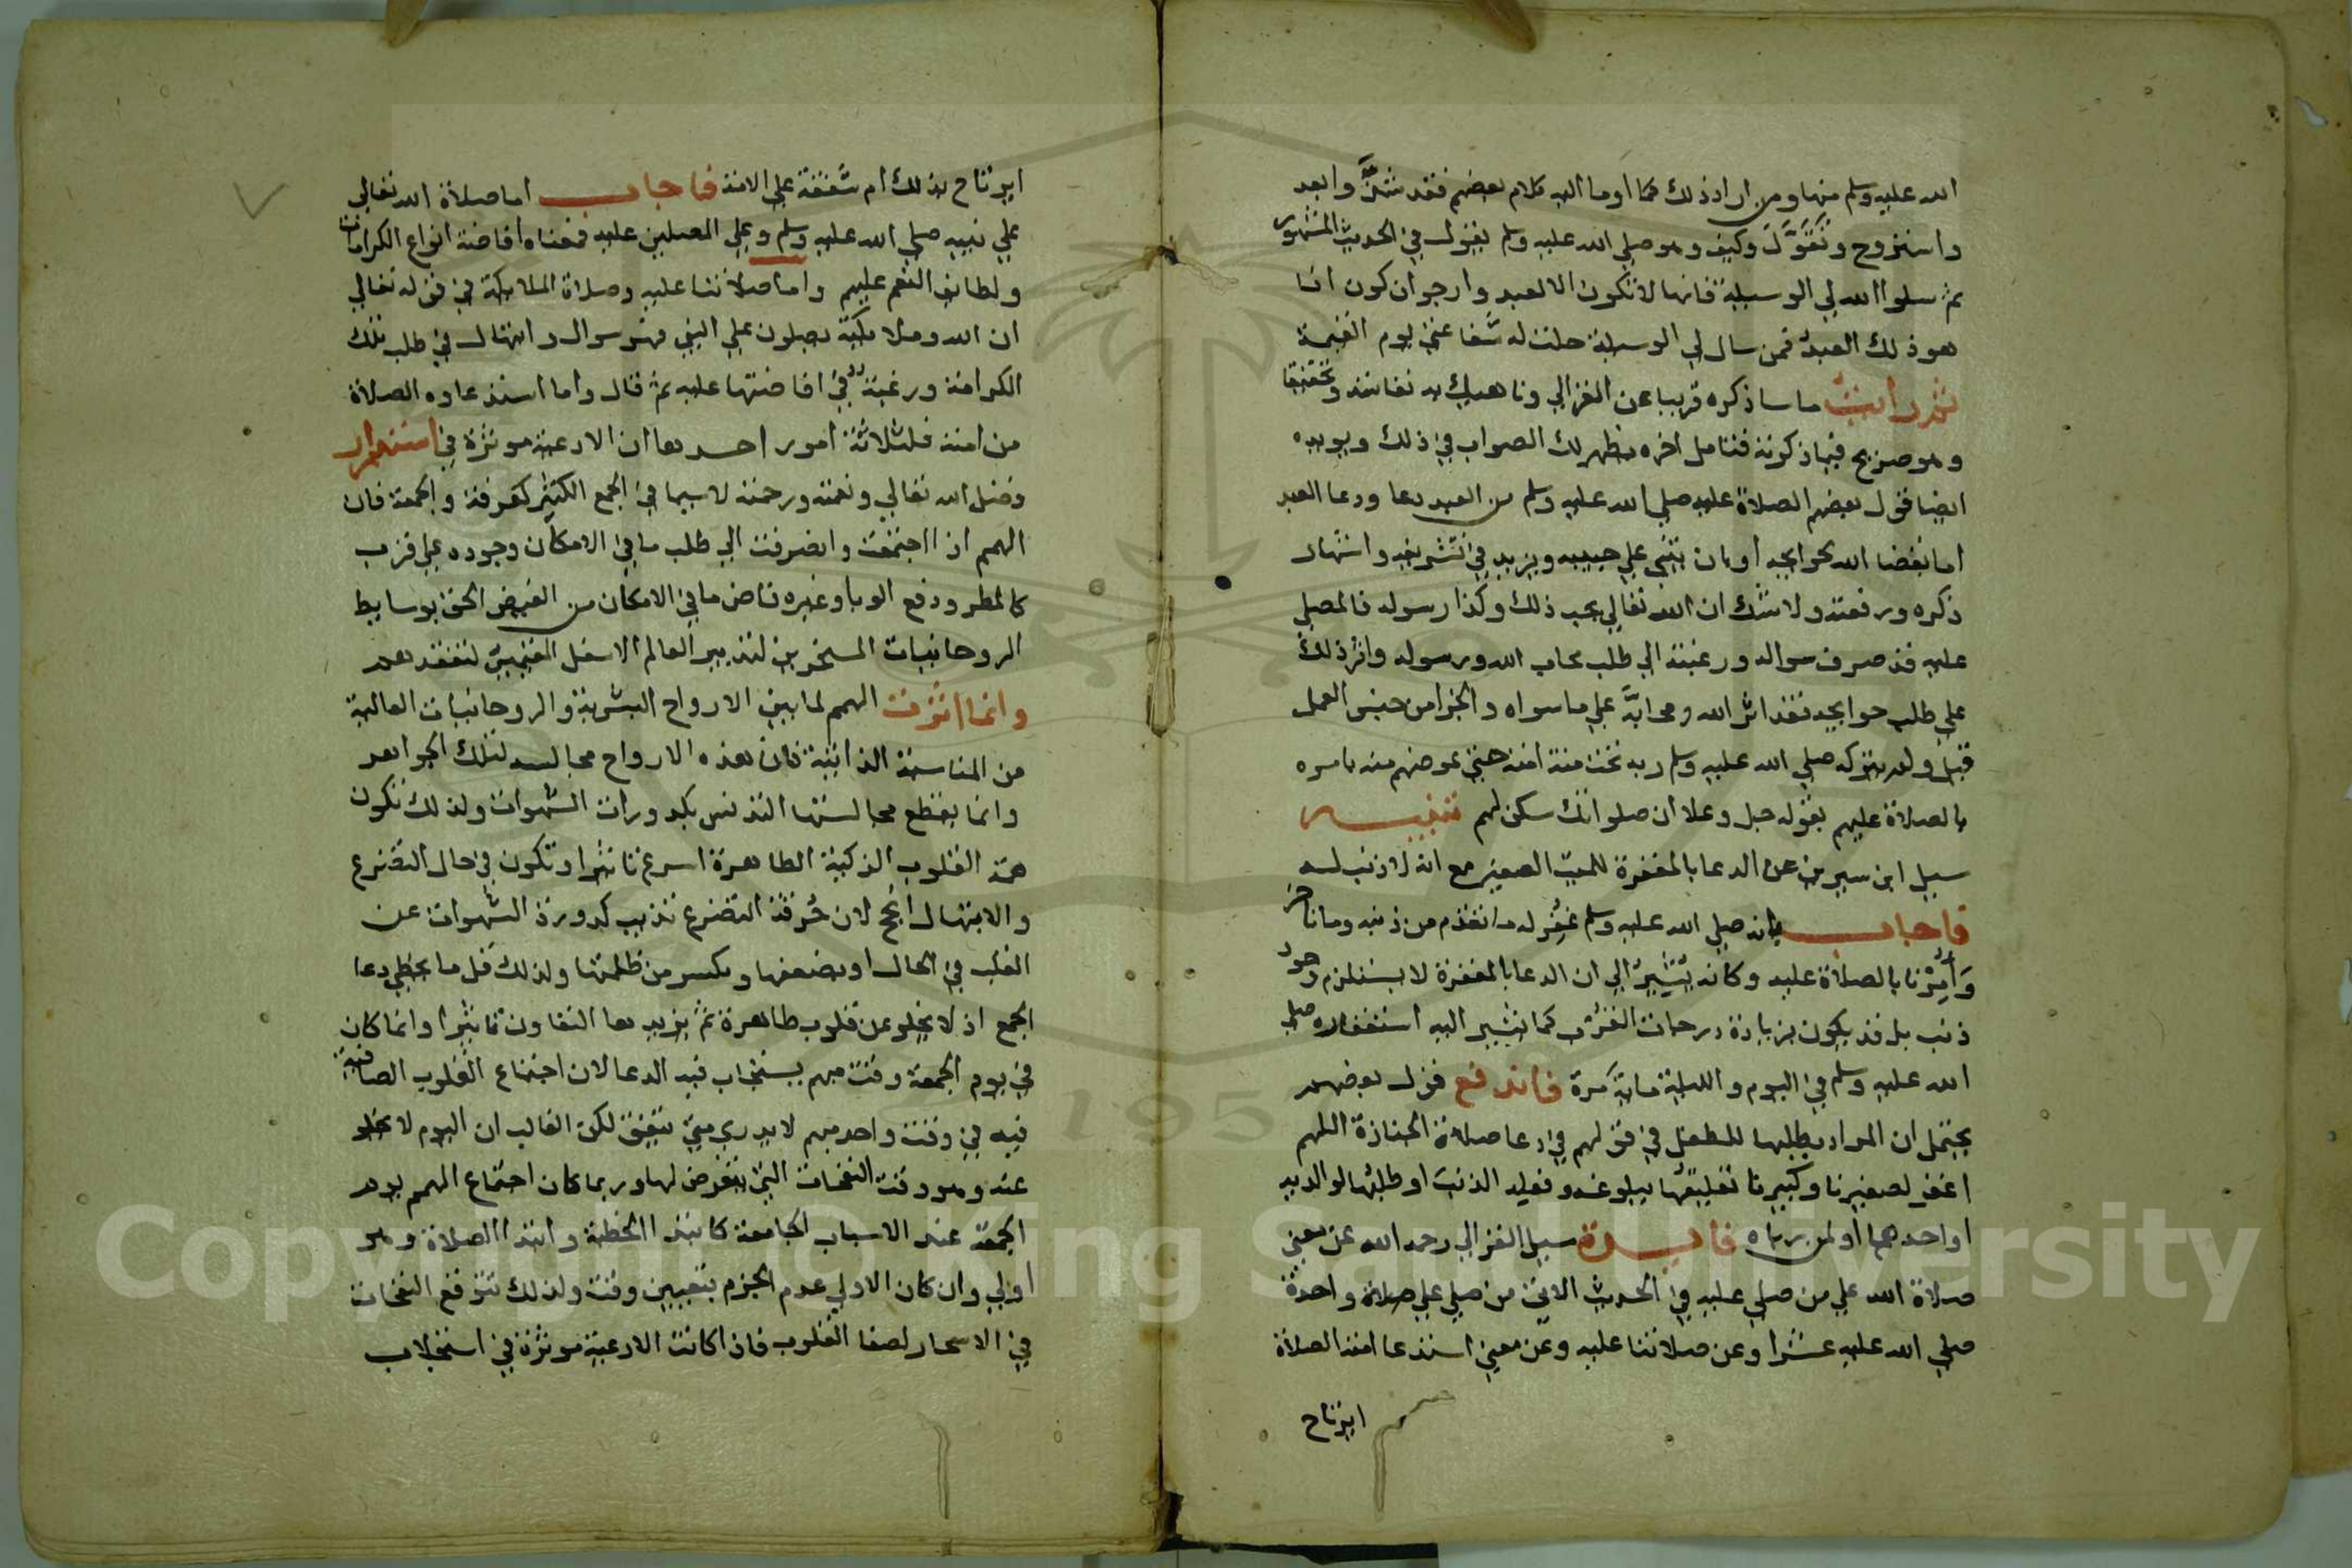 الله عليه وسلم منها ومن اراد ذلك كما اوما اليه كلام بعضهم فقد شذَّ وابعد
واستروح وتَقَوَّلَ وكيف وهو صلي الله عليه وسلم يقول في الحديث المشهور
ثم سلوا الله لي الوسيلة فانها لا تكون الا لعبد وارجو ان اكون انا
هو ذلك العبد فمن سال لي الوسيلة حلت له شفاعتي يوم القيمة
ثم رايت ما ساذكره قريبا عن الغزالي وناهيك به نفاسة وتحقيقا
وهو صريح فيما ذكرته فتامل اخره يظهر لك الصواب في ذلك ويويده
ايضا قول بعضهم الصلاة عليه صلي الله عليه وسلم من العبد دعا ودعا العبد
اما بقضا الله حوايجه او بان يثني علي حبيبه ويزيد في تشريفه واشهار
ذكره ورفعته ولا شك ان الله تعالي يحب ذلك وكذا رسوله فالمصلي
عليه قد صرف سواله ورغبته الي طلب محاب الله ورسوله واثر ذلك
علي طلب حوايجه فقد اثر الله ومحابَّه علي ما سواه والجزا من جنس العمل
قيل ولم يتركه صلي الله عليه وسلم ربه تحت منة امته حتي عوضهم منه بامره
بالصلاة عليهم بقوله جل وعلا ان صلواتك سكن لهم تنبيه
سيل ابن سيرين عن الدعا بالمغفرة للميت الصغير مع انه لا ذنب له
فاجاب بانه صلي الله عليه وسلم غُفِر له ما تقدم من ذنبه وما تاخر
وَأُمِرْنا بالصلاة عليه وكانه يُشيرُ الي ان الدعا بالمغفرة لا يستلزم وجود
ذنب بل قد يكون بزيادة درجات القرب كما يشير اليه استغفاره صلي
الله عليه وسلم في اليوم والليلة ماية مرة فاندفع قول بعضهم
يحتمل ان المراد بطلبها للطفل في قولهم في دعا صلاة الجنازة اللهم
اغفر لصغيرنا وكبيرنا تعليقُها ببلوغه وفعله الذنب او طلبُها لوالديه
او احدهما او لمن رباه فايدة سيل الغزالي رحمه الله عن معني
صلاة الله علي من صلي عليه في الحديث الاتي من صلي علي صلاة واحدة
صلي الله عليه عشرا وعن صلاتنا عليه وعن معني استدعا امته الصلاة
ايرتاح
ايرتاح بذلك ام شفقة علي الامة فاجاب اما صلاة الله تعالي
علي نبيه صلي الله عليه وسلم وعلي المصلين عليه فمعناه افاضة انواع الكرامات
ولطايف النعم عليهم واما صلاتنا عليه وصلاة الملايكة في قوله تعالي
ان الله وملايكته يصلون علي النبي فهو سوال وابتهال في طلب تلك
الكرامة ورغبة في افاضتها عليه ثم قال واما استدعاوه الصلاة
من امته فلثلاثة امور احدها ان الادعية موثرة في استدرار
فضل الله تعالي ونعمته ورحمته لا سيما في الجمع الكثير كعرفة والجمعة فان
الهمم اذا اجتمعت وانصرفت الي طلب ما في الامكان وجوده علي قرب
كالمطر ودفع الوبا وغيره فاض ما في الامكان من الفيض الحق بوسايط
الروحانيات المسخرين لتدبير العالم الاسفل
وانما اثرت الهمم لما بين الارواح البشرية والروحانيات العالية
من المناسبة الذاتية فان هذه الارواح مجانسة لتلك الجواهر
وانما يقطع مجانستها التدنس بكدورات الشهوات ولذلك تكون
همة القلوب الزكية الطاهرة اسرع تاثيرا وتكون في حال التضرع
والابتهال انجح لان حُرقة التضرع تذيب كدورة الشهوات عن
القلب في الحال او يضعفها ويكسر من ظلمتها ولذلك قل ما يخطي دعا
الجمع اذ لا يخلو عن قلوب طاهرة ثم يزيدها التعاون تاثيرا وانما كان
في يوم الجمعة وقت مبهم يستجاب فيه الدعا لان اجتماع القلوب الصافية
فيه في وقت واحد مبهم لا يدري متي يتفق لكن الغالب ان اليوم لا يخلو
عنه وهو وقت النفحات التي يتعرض لها وربما كان اجتماع الهمم يوم
الجمعة عند الاسباب الجامعة كابتدا الخطبة وابتدا الصلاة وهو
اولي وان كان الاولي عدم الجزم بتعيين وقت ولذلك تتوقع النفحات
في الاسحار لصفا القلوب فاذا كانت الادعية موثرة في استجلاب
Copyright © King Saud University
195